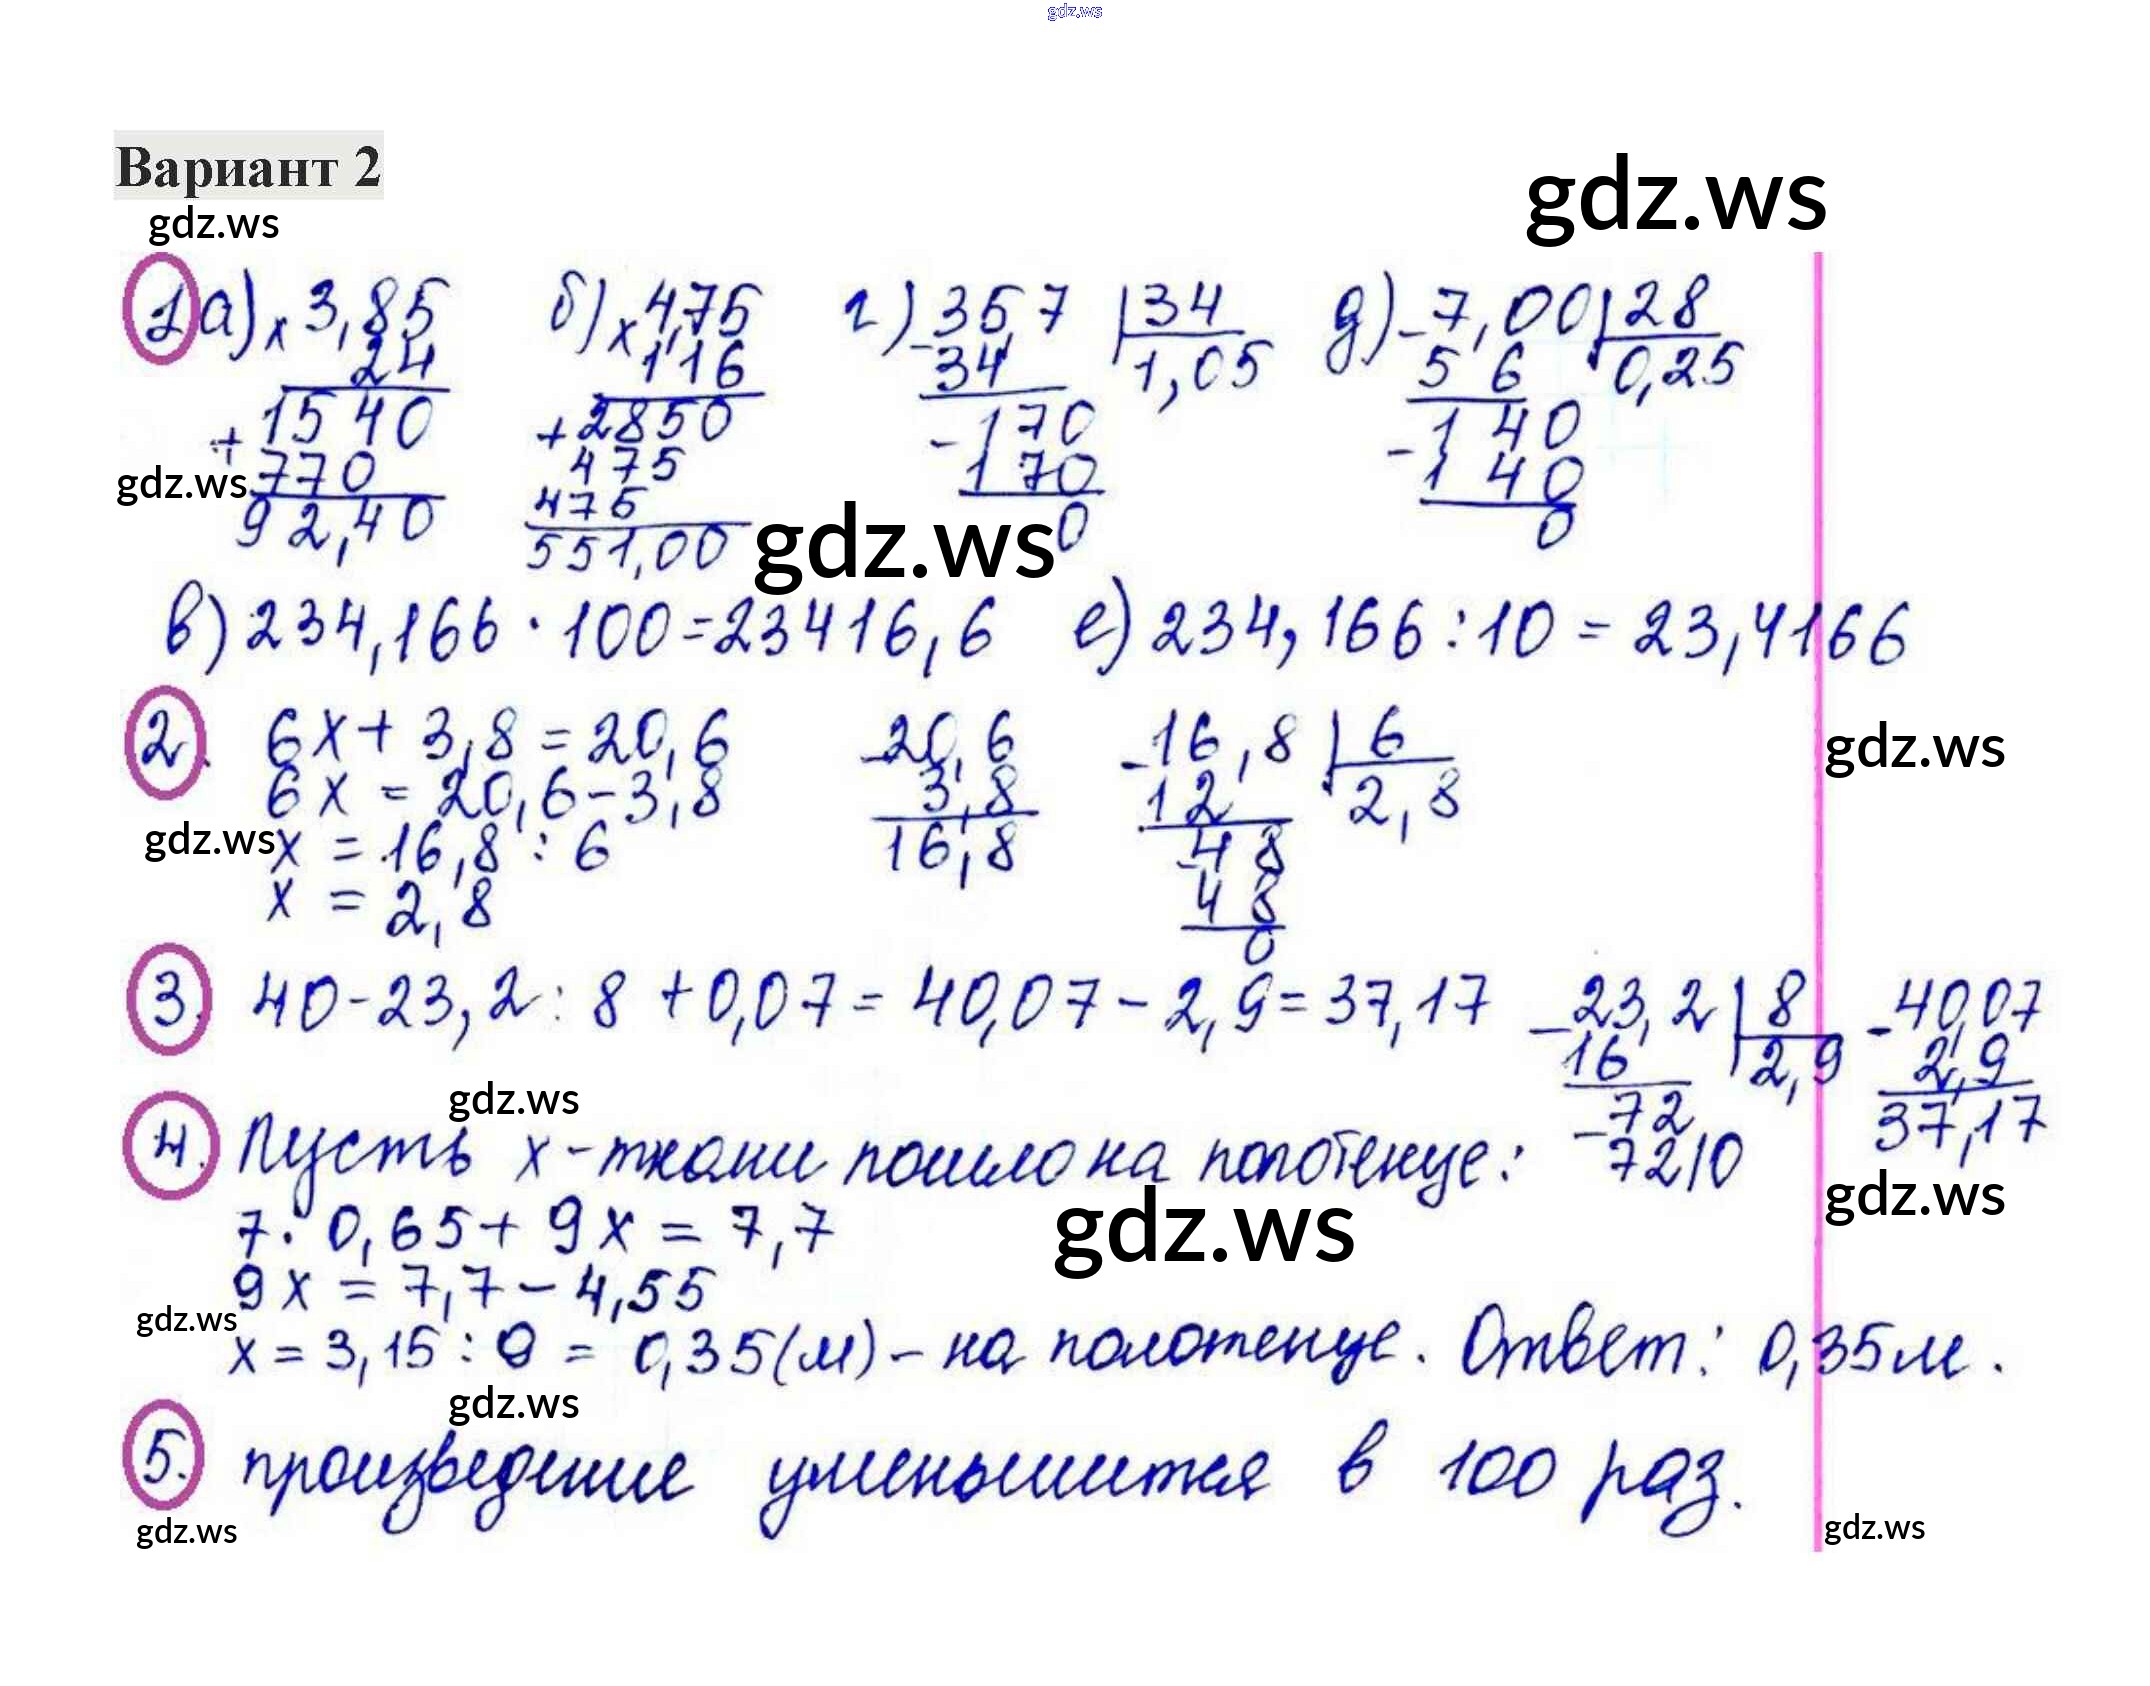 gdz.ws
Вариант 2
gdz.ws
gdz.ws
1 а) × 3,85 б) × 4,75 г) - 35,7 | 34 д) - 7,00 | 28
24 116 34 1,05 5 6 0,25
+ 1540 + 2850 - 170 - 140
gdz.ws 770 475 170 140
92,40 475 gdz.ws 0 0
551,00
в) 234,166 · 100 = 23416,6 е) 234,166 : 10 = 23,4166
2. 6x + 3,8 = 20,6 - 20,6 - 16,8 | 6 gdz.ws
6x = 20,6 - 3,8 3,8 12 2,8
gdz.ws x = 16,8 : 6 16,8 - 48
x = 2,8 48
0
3. 40 - 23,2 : 8 + 0,07 = 40,07 - 2,9 = 37,17 - 23,2 | 8 - 40,07
16 2,9 2,9
gdz.ws - 72 37,17
4. Пусть x - ткани пошло на полотенце: 72 | 0
gdz.ws gdz.ws
7 · 0,65 + 9x = 7,7
9x = 7,7 - 4,55
gdz.ws
x = 3,15 : 9 = 0,35 (м) - на полотенце. Ответ: 0,35 м.
gdz.ws
5. произведение уменьшится в 100 раз.
gdz.ws gdz.ws